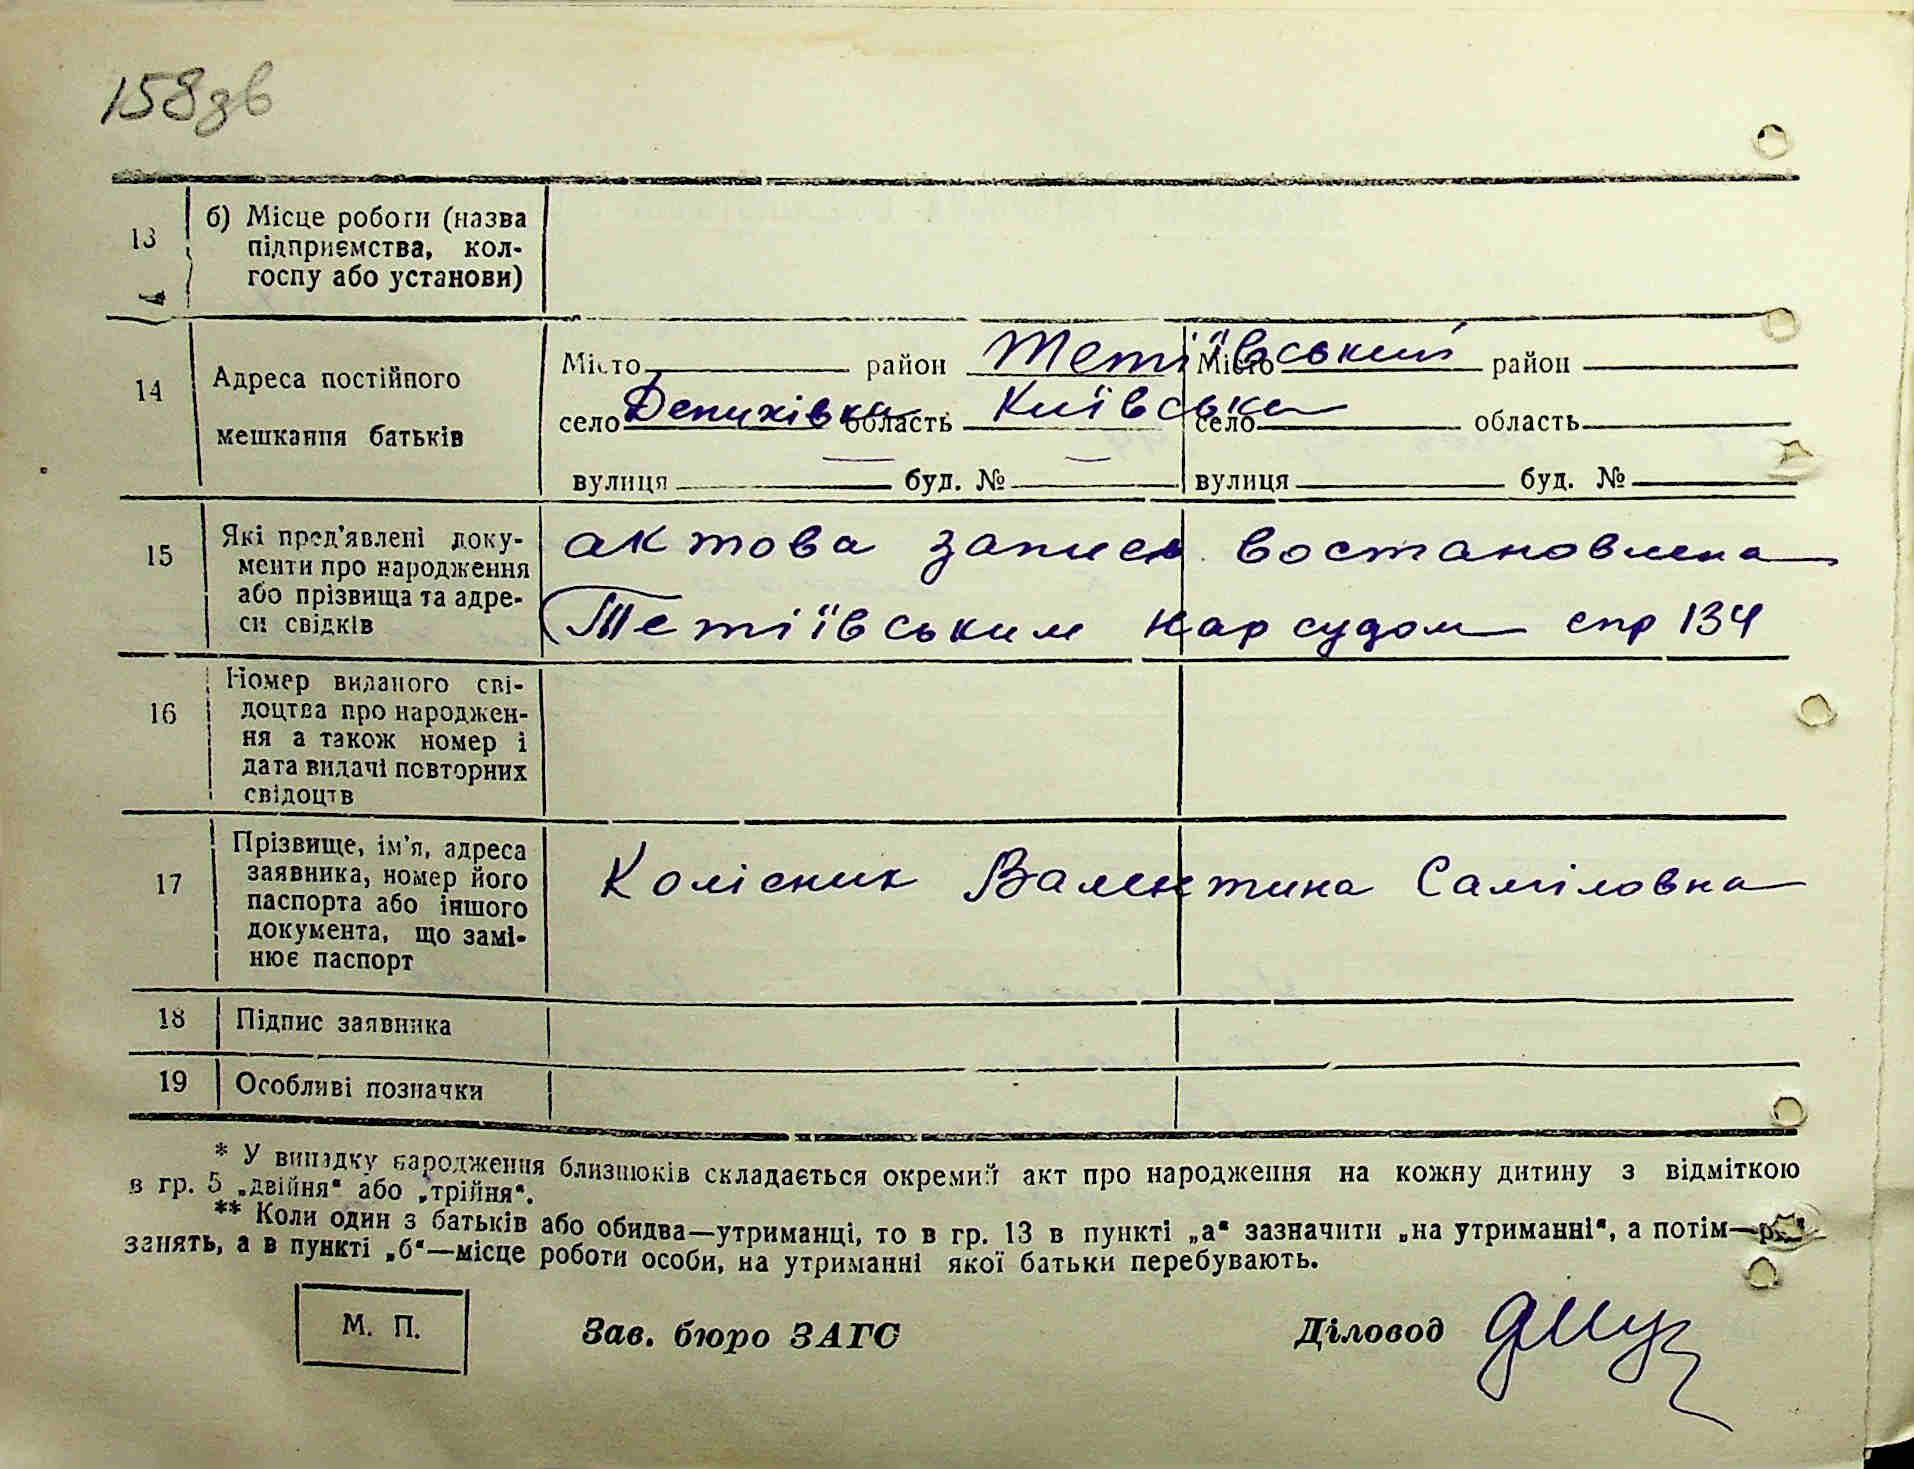 158зв
13 б) Місце роботи (назва
підприємства, кол-
госпу або установи)
14 Адреса постійного
мешкання батьків
Місто район Тетіївський Місто район
село Денихівка область Київська село область
вулиця — буд. № — вулиця буд. №
15 Які пред'явлені доку-
менти про народження
або прізвища та адре-
си свідків
актова запись востановлена
Тетіївським нар судом спр 134
16 Номер виданого сві-
доцтва про народжен-
ня а також номер і
дата видачі повторних
свідоцтв
17 Прізвище, ім'я, адреса
заявника, номер його
паспорта або іншого
документа, що замі-
нює паспорт
Колісник Валентина Саміловна
18 Підпис заявника
19 Особливі позначки
* У випадку народження близнюків складається окремий акт про народження на кожну дитину з відміткою
в гр. 5 „двійня“ або „трійня“.
** Коли один з батьків або обидва—утриманці, то в гр. 13 в пункті „а“ зазначити „на утриманні“, а потім—
занять, а в пункті „б“—місце роботи особи, на утриманні якої батьки перебувають.
М. П.
Зав. бюро ЗАГС
Діловод